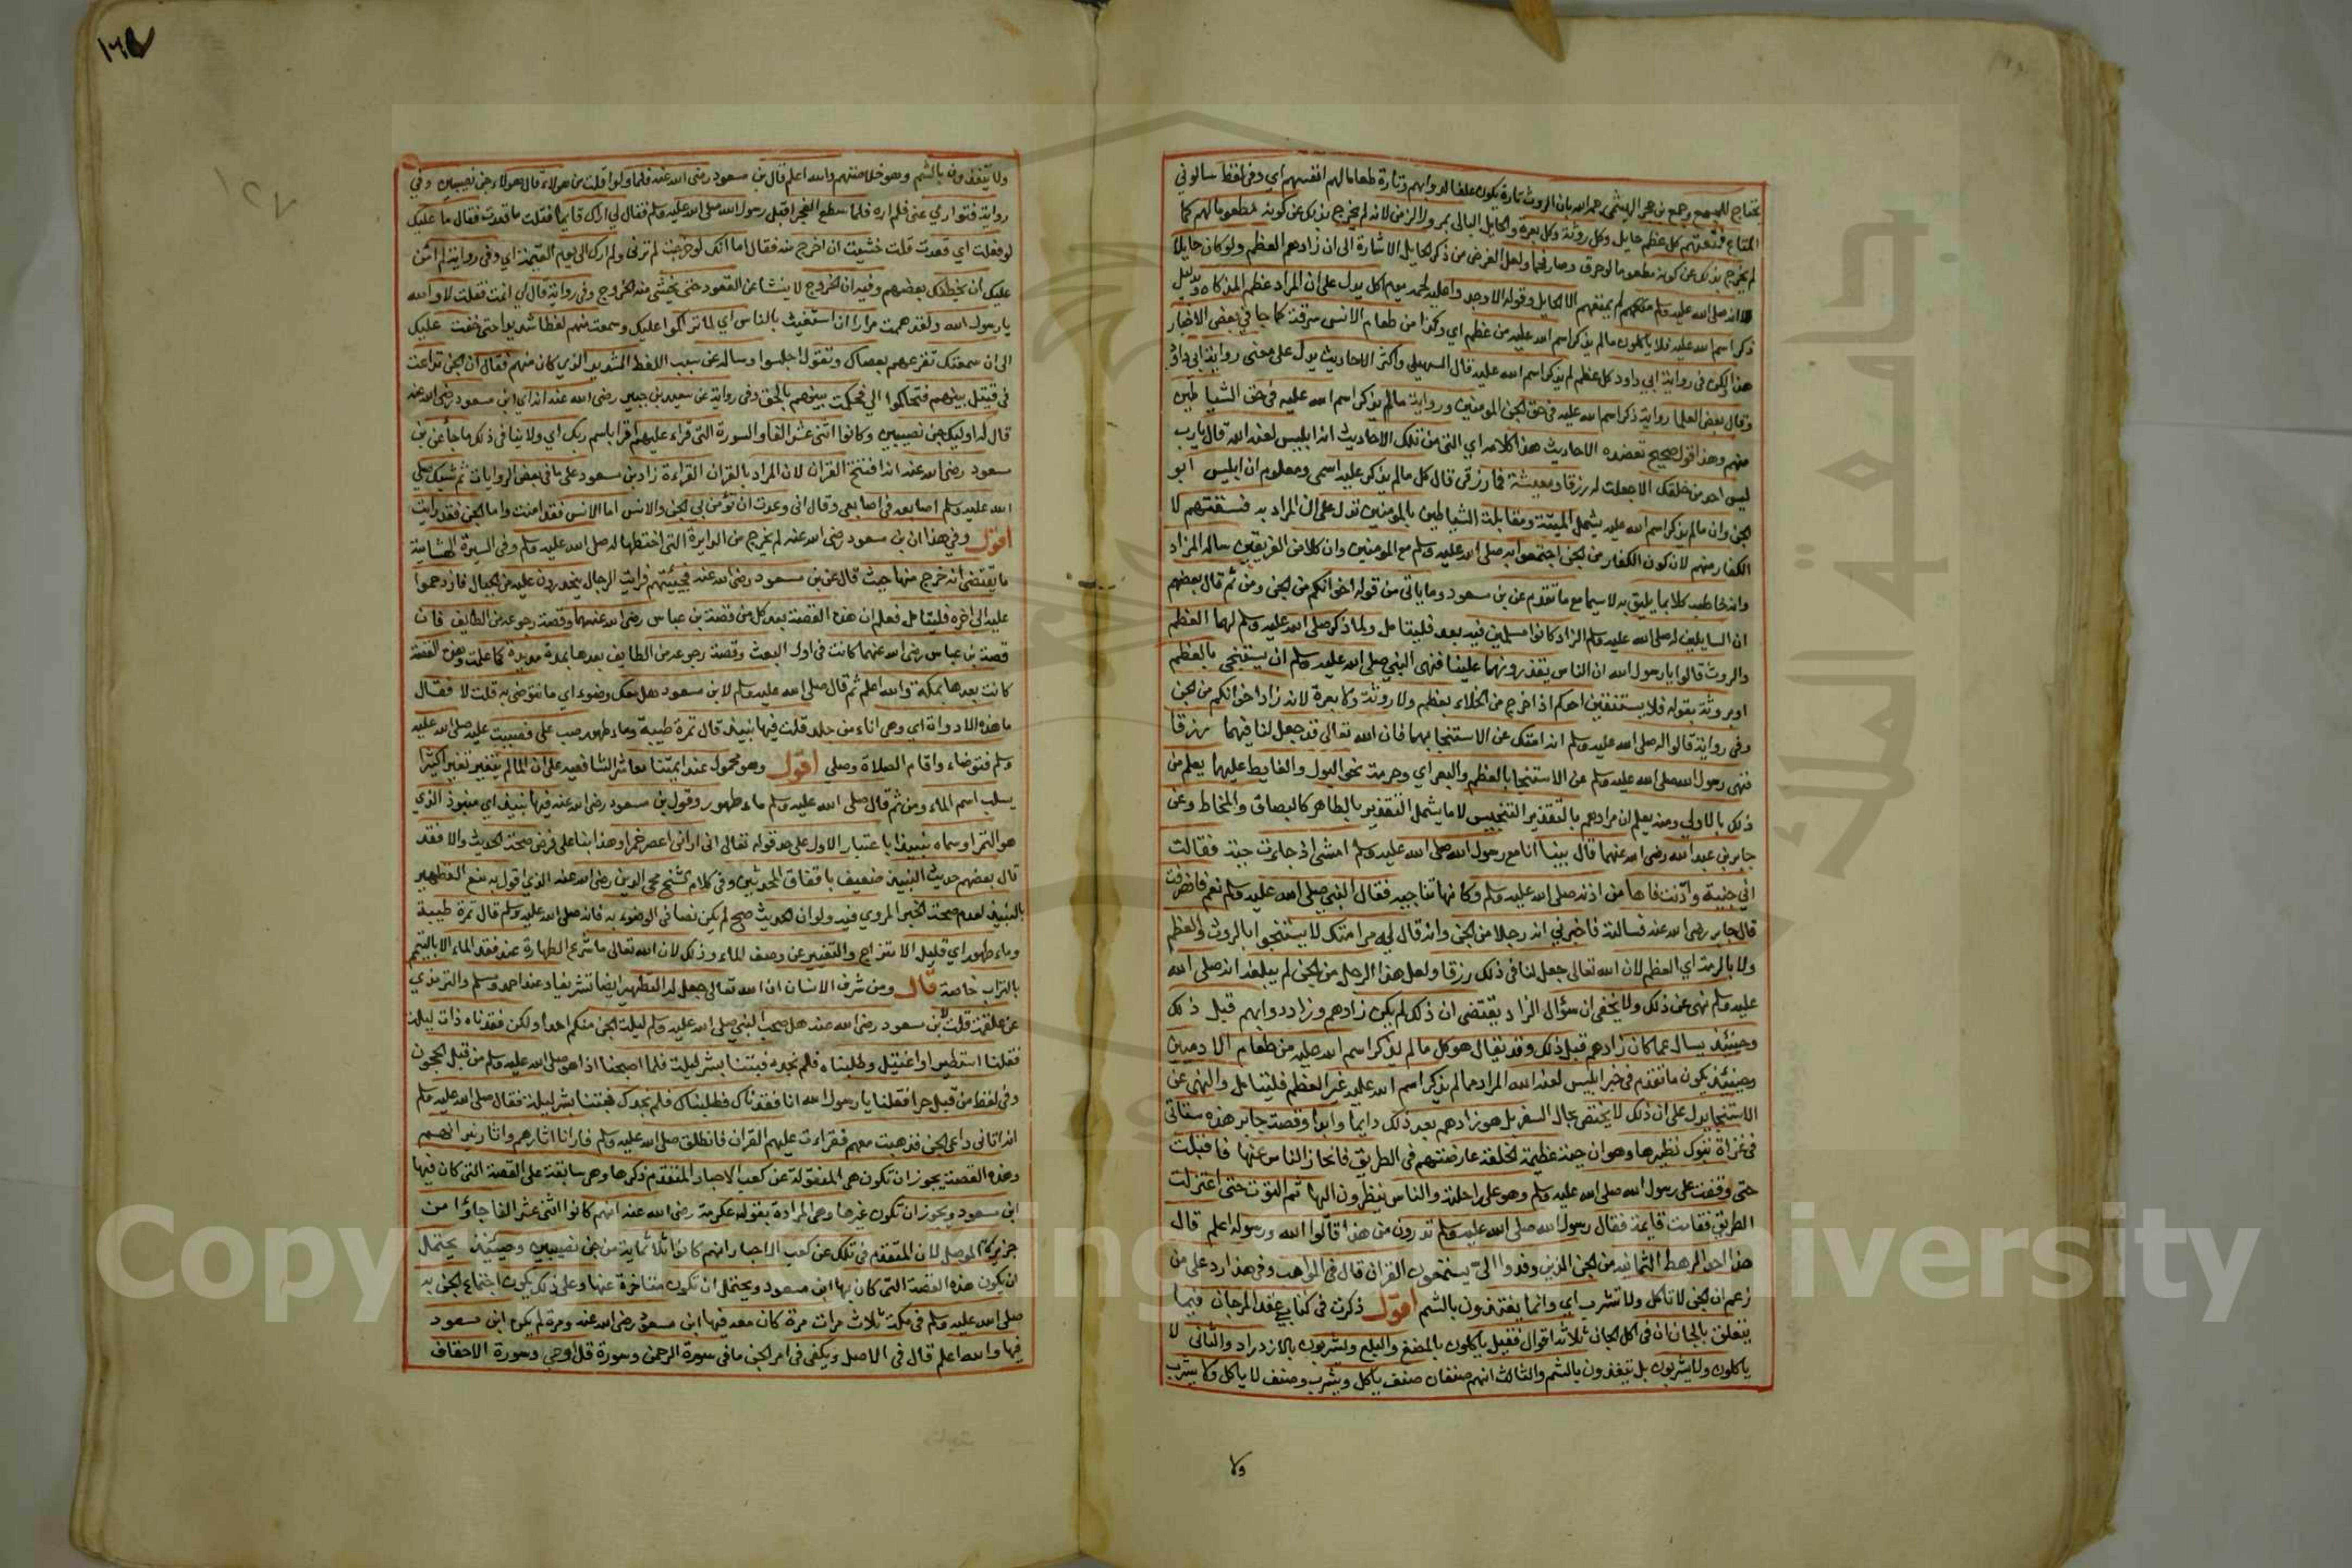 يحتاج للجمع وجمع بن حجر الهيثمي رحمه الله بان الروث تارة يكون علفا لدوابهم وتارة طعاما لهم انفسهم اي وفي لفظ سالوني
المتاع فمتعتهم كل عظم حايل وكل روثة وكل بعرة والحايل البالي بمرور الزمن لانه لم يخرج بذلك عن كونه مطعوما لهم كما
لم يخرج بذلك عن كونه مطعوما لو حرق وصار فحما ولعل الغرض من ذكر الحايل الاشارة الى ان زادهم العظم ولو كان حايلا
لانه صلى الله عليه وسلم لم يمتعهم الا الحايل وقوله الا وجد واعليه لحمه يوم اكل يدل على ان المراد عظم المذكاه بدليل
ذكر اسم الله عليه فلا ياكلون مالم يذكر اسم الله عليه من عظم اي وكذا من طعام الانس سرقة كما جا في بعض الاخبار
هذا لكن في رواية ابي داود كل عظم لم يذكر اسم الله عليه قال السهيلي واكثر الاحاديث يدل على معنى رواية ابي داود
وقال بعض العلما رواية ذكر اسم الله عليه في حق الجن المومنين ورواية مالم يذكر اسم الله عليه في حق الشياطين
منهم وهذا قول صحيح تعضده الاحاديث هذا كلامه اي التي من تلك الاحاديث ان ابليس لعنه الله قال يارب
ليس احد من خلقك الا جعلت له رزقا ومعيشة فما رزقي قال كل مالم يذكر عليه اسمي ومعلوم ان ابليس ابو
الجن وان مالم يذكر اسم الله عليه يشمل الميتة ومقابلة الشياطين بالمومنين تدل على ان المراد به فسقتهم لا
الكفار منهم لان كون الكفار من الجن اجتمعوا به صلى الله عليه وسلم مع المومنين وان كلا من الفريقين ساله الزاد
وانه خاطب كلا بما يليق به لا سيما مع ما تقدم عن بن مسعود وما ياتي من قوله اخوانكم من الجن ومن ثم قال بعضهم
ان السايلين له صلى الله عليه وسلم الزاد كانوا مسلمين فيه بعد فليتامل ولما ذكر صلى الله عليه وسلم لهما العظم
والروث قالوا يا رسول الله ان الناس يقذرونهما علينا فنهى النبي صلى الله عليه وسلم ان يستنجى بالعظم
او بروثة بقوله فلا يستنقين احدكم اذا خرج من الخلاء بعظم ولا روثة ولا بعرة لانه زاد اخوانكم من الجن
وفي رواية قالوا له صلى الله عليه وسلم انه امتك عن الاستنجا بهما فان الله تعالى قد جعل لنا فيهما رزقا
فنهى رسول الله صلى الله عليه وسلم عن الاستنجا بالعظم والبعر اي وحرمة نحو البول والغايط عليهما يعلم من
ذلك بالاولى ومنه يعلم ان مرادهم بالتقذير التنجيس لا ما يشمل التقذير بالطاهر كالبصاق والمخاط وعن
جابر بن عبد الله رضي الله عنهما قال بينا انا مع رسول الله صلى الله عليه وسلم امشي اذ جاءت جنة فقالت
اني جنية وادنت فاها من اذنه صلى الله عليه وسلم وكانها تناجيه فقال النبي صلى الله عليه وسلم نعم فانصرفت
قال جابر رضي الله عنه فسالته فاخبرني انه رجلا من الجن وانه قال لي مر امتك لا يستنجوا بالروث والعظم
ولا بالرمة اي العظم لان الله تعالى جعل لنا في ذلك رزقا ولعل هذا الرجل من الجن لم يبلغه انه صلى الله
عليه وسلم نهى عن ذلك ولا يخفى ان سؤال الزاد يقتضي ان ذلك لم يكن زادهم وزاد دوابهم قبل ذلك
وحينئذ يسال عما كان زادهم قبل ذلك وقد يقال هو كل مالم يذكر اسم الله عليه من طعام الادميين
وحينئذ يكون ما تقدم في خبر ابليس لعنه الله المراد بما لم يذكر اسم الله عليه غير العظم فليتامل والنهي عن
الاستنجا يدل على ان ذلك لا يختص بحال السفر بل هو زادهم بعد ذلك دايما وابدا وقصة جابر هذه سياتي
في غزاة تبوك نظيرها وهو ان حية عظيمة الخلقة عارضتهم في الطريق فانحاز الناس عنها فاقبلت
حتى وقفت على رسول الله صلى الله عليه وسلم وهو على راحلته والناس ينظرون اليها ثم التوت حتى اعتزلت
الطريق فقامت قايمة فقال رسول الله صلى الله عليه وسلم تدرون من هذا قالوا الله ورسوله اعلم قال
هذا احد الرهط الثمانية من الجن الذين وفدوا الي يستمعون القران قال في المواهب وفي هذا رد على من
زعم ان الجن لا تاكل ولا تشرب اي وانما يغتذون بالشم اقول ذكرت في كتابي عقد المرجان فيما
يتعلق بالجان ان في اكل الجان ثلاثة اقوال فقيل ياكلون بالمضغ والبلع ويشربون بالازدراد والثاني لا
ياكلون ولا يشربون بل يتغذون بالشم والثالث انهم صنفان صنف ياكل ويشرب وصنف لا ياكل ولا يشرب
ولا
١٢٧
ولا يتغذون بالشم وهو خلاصتهم والله اعلم قال بن مسعود رضي الله عنه فلما ولوا قلت من هولاء قال هولاء جن نصيبين وفي
رواية فتواري عني فلم اره فلما سطع الفجر اقبل رسول الله صلى الله عليه وسلم فقال لي اراك قايما فقلت ما قعدت فقال ما عليك
لو فعلت اي قعدت قلت خشيت ان اخرج منه فقال اما انك لو خرجت لم ترني ولم ارك الى يوم القيمة اي وفي رواية لم امن
عليك ان يخطفك بعضهم وفيه ان الخروج لا ينشا عن القعود حتى يخشى منه الخروج وفي رواية قال لي انمت فقلت لا والله
يا رسول الله ولقد هممت مرارا ان استغيث بالناس اي لما تراكموا عليك وسمعت منهم لغطا شديدا حتى خفت عليك
الى ان سمعتك تقرعهم بعصاك وتقول اجلسوا وساله عن سبب اللغط الشديد الذي كان منهم فقال ان الجن تداعت
في قتيل بينهم فتحاكموا الي فحكمت بينهم بالحق وفي رواية عن سعيد بن جبير رضي الله عنه انه اي ابن مسعود رضي الله عنه
قال له اوليك جن نصيبين وكانوا اثني عشر الفا والسورة التي قراء عليهم اقرا باسم ربك اي ولا ينافي ذلك ما جا عن بن
مسعود رضي الله عنه انه افتتح القران لان المراد بالقران القراءة زاد بن مسعود على ما في بعض الروايات ثم شبك صلى
الله عليه وسلم اصابعه في اصابعي وقال اني وعدت ان تؤمن بي الجن والانس اما الانس فقد امنت واما الجن فقد رايت
اقول وفي هذا ان بن مسعود رضي الله عنه لم يخرج من الدايرة التي اختطها له صلى الله عليه وسلم وفي السيرة الهشامية
ما يقتضي انه خرج منها حيث قال عن بن مسعود رضي الله عنه فجيئتهم فرايت الرجال ينحدرون عليه من الجبال فازدحموا
عليه الى اخره فليتامل فعلم ان هذه القصة بعد كل من قصة بن عباس رضي الله عنهما وقصة رجوعه من الطايف فان
قصة بن عباس رضي الله عنهما كانت في اول البعث وقصة رجوعه من الطايف بعدها بمدة مديدة كما علمت وهذه القصة
كانت بعدها بمكة والله اعلم ثم قال صلى الله عليه وسلم لابن مسعود هل معك وضوء اي ما نتوضى به قلت لا فقال
ما هذه الادواة اي وهي اناء من جلد قلت فيها نبيذ قال تمرة طيبة وماء طهور صب علي فصببت عليه صلى الله عليه
وسلم فتوضاء واقام الصلاة وصلى اقول وهو محمول عند ايمتنا معاشر الشافعيه على ان الما لم يتغير تغيرا كثيرا
يسلب اسم الماء ومن ثم قال صلى الله عليه وسلم ماء طهور وقول بن مسعود رضي الله عنه فيها نبيذ اي منبوذ الذي
هو التمر او سماه نبيذا باعتبار الاول على حد قوله تعالى اني اراني اعصر خمرا وهذا بنا على فرض صحة الحديث والا فقد
قال بعضهم حديث النبيذ ضعيف باتفاق المحدثين وفي كلام الشيخ محي الدين رضي الله عنه الذي اقول به منع التطهير
بالنبيذ لعدم صحة الخبر المروي فيه ولو ان الحديث صح لم يكن نصا في الوضوء به فانه صلى الله عليه وسلم قال تمرة طيبة
وماء طهور اي قليل الامتزاج والتغيير عن وصف الماء وذلك لان الله تعالى ما شرع الطهارة عند فقد الماء الا بالتيمم
بالتراب خاصة قال ومن شرف الانسان ان الله تعالى جعل له التطهير ايضا تشريفا وعند احمد وسلم والترمذي
عن علقمة قلت لابن مسعود رضي الله عنه هل صحب النبي صلى الله عليه وسلم ليلة الجن منكم احد ولكن فقدناه ذات ليلة
فقلنا استطير او اغتيل وطلبناه فلم نجده فبتنا بشر ليلة فلما اصبحنا اذا هو صلى الله عليه وسلم من قبل الحجون
وفي لفظ من قبل حرا فقلنا يا رسول الله انا فقدناك فطلبناك فلم نجدك فبتنا بشر ليلة فقال صلى الله عليه وسلم
انه اتاني داعي الجن فذهبت معهم فقراءت عليهم القران فانطلق صلى الله عليه وسلم فارانا اثارهم واثار نيرانهم
وهذه القصة يجوز ان تكون هي المنقولة عن كعب الاحبار المتقدم ذكرها وهي سابقة على القصة التي كان فيها
ابن مسعود ويجوز ان تكون غيرها وهي المرادة بقول عكرمة رضي الله عنه انهم كانوا اثني عشر الفا جاؤا من
جزيرة الموصل لان المتقدم في تلك عن كعب الاحبار انهم كانوا ثلاثماية من جن نصيبين وحينئذ يحتمل
ان يكون هذه القصة التي كان بها ابن مسعود ويحتمل ان تكون متاخرة عنها وعلى ذلك يكون اجتماع الجن به
صلى الله عليه وسلم في مكة ثلاث مرات مرة كان معه فيها ابن مسعود رضي الله عنه ومرة لم يكن ابن مسعود
فيها والله اعلم قال في الاصل ويكفي في امر الجن ما في سورة الرحمن وسورة قل اوحي وسورة الاحقاف
Copyright © King Saud University
جامعة الملك سعود